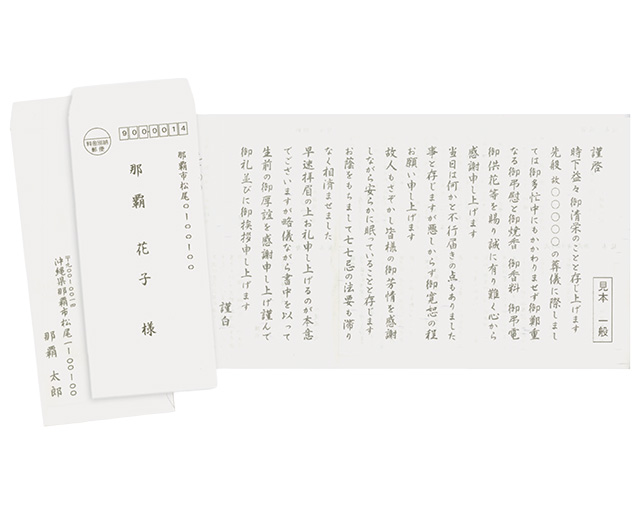 見本 一般
謹啓
時下益々御清栄のことと存じ上げます
先般 故○○○○○の葬儀に際しまし
ては御多忙中にもかかわりませず御鄭重
なる御弔慰と御焼香 御香料 御弔電
御供花等を賜り誠に有り難く心から
感謝申し上げます
当日は何かと不行届きの点もありました
事と存じますが悪しからず御寛恕の程
お願い申し上げます
故人もさぞかし皆様の御芳情を感謝
しながら安らかに眠っていることと存じます
お蔭をもちまして七七忌の法要も滞り
なく相済ませました
早速拝眉の上お礼申し上げるのが本意
でございますが略儀ながら書中を以って
生前の御厚誼を感謝申し上げ謹んで
御礼並びに御挨拶申し上げます
謹白
900-0014
料金別納
郵便
那覇市松尾〇ー〇〇ー〇〇
那覇 花子 様
沖縄県那覇市松尾一ー〇〇ー〇〇
那覇 太郎